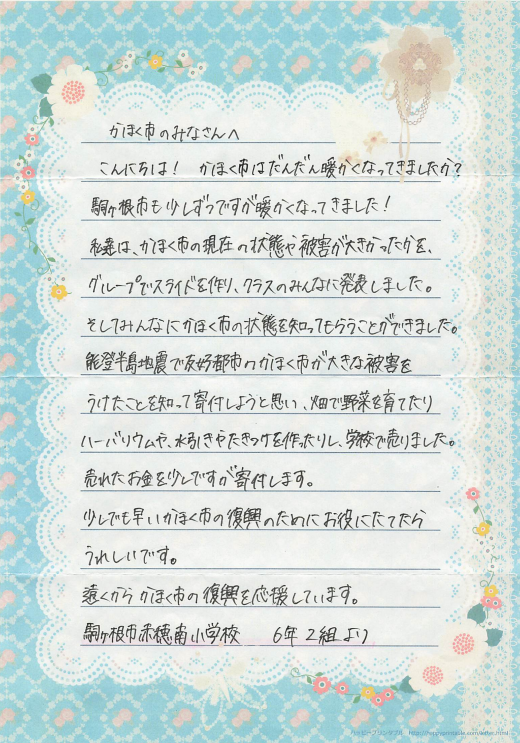 かほく市のみなさんへ
こんにちは！ かほく市はだんだん暖かくなってきましたか？
駒ヶ根市も少しずつですが暖かくなってきました！
私達は、かほく市の現在の状態や被害が大きかったかを、
グループでスライドを作り、クラスのみんなに発表しました。
そしてみんなにかほく市の状態を知ってもらうことができました。
能登半島地震で友好都市のかほく市が大きな被害を
うけたことを知って寄付しようと思い、畑で野菜を育てたり
ハーバリウムや、水引きやたきつけを作ったりし、学校で売りました。
売れたお金を少しですが寄付します。
少しでも早いかほく市の復興のためにお役にたてたら
うれしいです。
遠くからかほく市の復興を応援しています。
駒ヶ根市赤穂南小学校 6年2組より